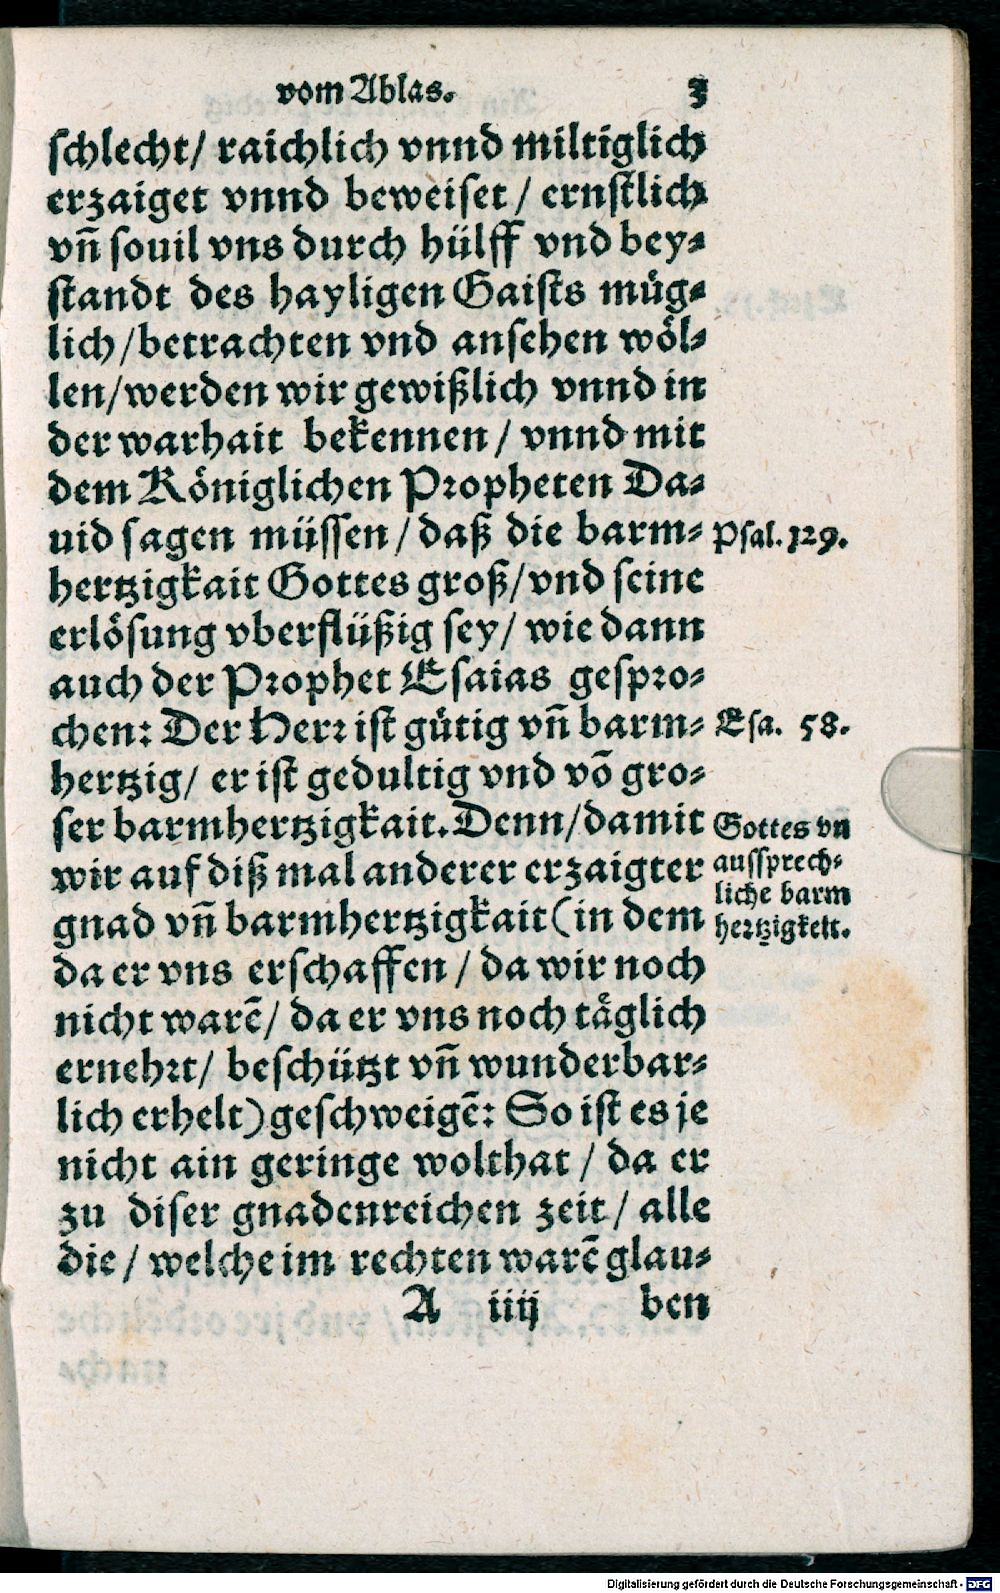 vom Ablas. 3
schlecht/ raichlich vnnd miltiglich
erzaiget vnnd beweiset / ernstlich
vñ souil vns durch hülff vnd bey⸗
standt des hayligen Gaists müg⸗
lich /betrachten vnd ansehen wöl⸗
len/werden wir gewißlich vnnd in
der warhait bekennen / vnnd mit
dem Königlichen Propheten Da⸗
uid sagen müssen / daß die barm⸗
Psal. 129.
hertzigkait Gottes groß/ vnd seine
erlösung vberflüßig sey/ wie dann
auch der Prophet Esaias gespro⸗
chen: Der Herr ist gütig vñ barm⸗
Esa. 58.
hertzig/ er ist gedultig vnd võ gro⸗
ser barmhertzigkait. Denn/damit
wir auf diß mal anderer erzaigter
gnad vñ barmhertzigkait (in dem
Gottes vñ
aussprech⸗
liche barm
hertzigkeit.
da er vns erschaffen / da wir noch
nicht warẽ/ da er vns noch täglich
ernehrt/ beschützt vñ wunderbar⸗
lich erhelt) geschweigẽ: So ist es je
nicht ain geringe wolthat / da er
zu diser gnadenreichen zeit / alle
die / welche im rechten warẽ glau⸗
A iiij ben
Digitalisierung gefördert durch die Deutsche Forschungsgemeinschaft - DFG